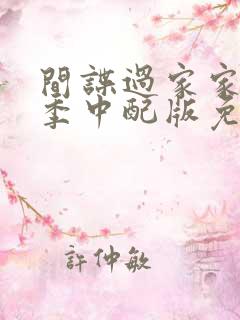 間諜過家家
季中配版免
許仲敏